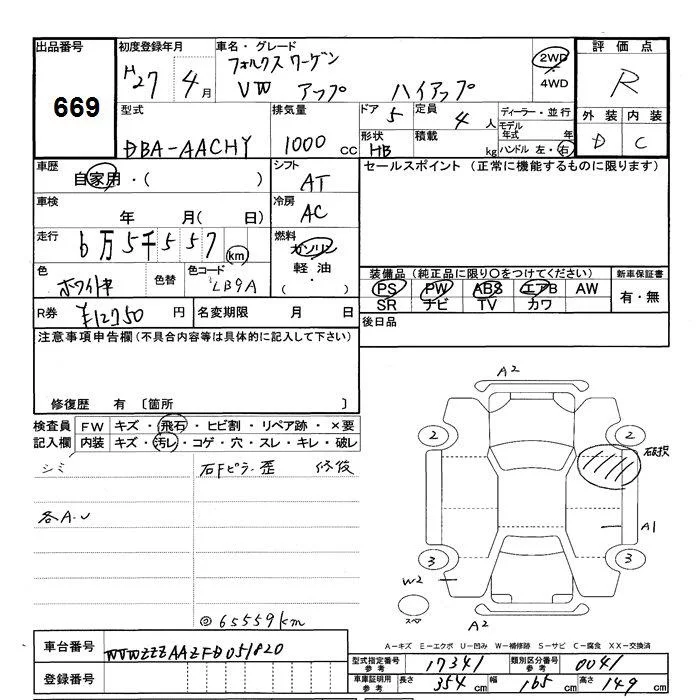 出品番号 初度登録年月 車名・グレード 評価点
669
H27年 4月 フォルクスワーゲン
VW アップ ハイアップ
2WD
・
4WD
R
外装 内装
D C
型式 排気量 ドア 5 定員 4人 ディーラー・並行
モデル年式 年
DBA-AACHY 1000cc 形状 HB 積載 kg ハンドル 左・右
車歴 自家用・( ) シフト AT セールスポイント (正常に機能するものに限ります)
車検 年 月( 日) 冷房 AC
走行 6万5千557 km 燃料 ガソリン
軽油
・( )
色 ホワイト 色替 色コード LB9A
装備品 (純正品に限り○をつけてください) 新車保証書
PS PW ABS エアB AW 有・無
SR ナビ TV カワ
R券 ¥12750円 名変期限 月 日 後日品
注意事項申告欄 (不具合内容等は具体的に記入して下さい)
修復歴 有 〔箇所 〕
検査員 FW キズ・飛石・ヒビ割・リペア跡・×要
記入欄 内装 キズ・汚レ・コゲ・穴・スレ・キレ・破レ
シミ 右Fピラー歪 修復
各A.U
◎65559km
A2
2 2
A1
3 3
W2
スペア
A2
A-キズ E-エクボ U-凹み W-補修跡 S-サビ C-腐食 XX-交換済
車台番号 WVWZZZAAZFD051820
登録番号
型式指定番号 参考 17341 類別区分番号 参考 0041
車庫証明用 参考 長さ 354cm 幅 165cm 高さ 149cm